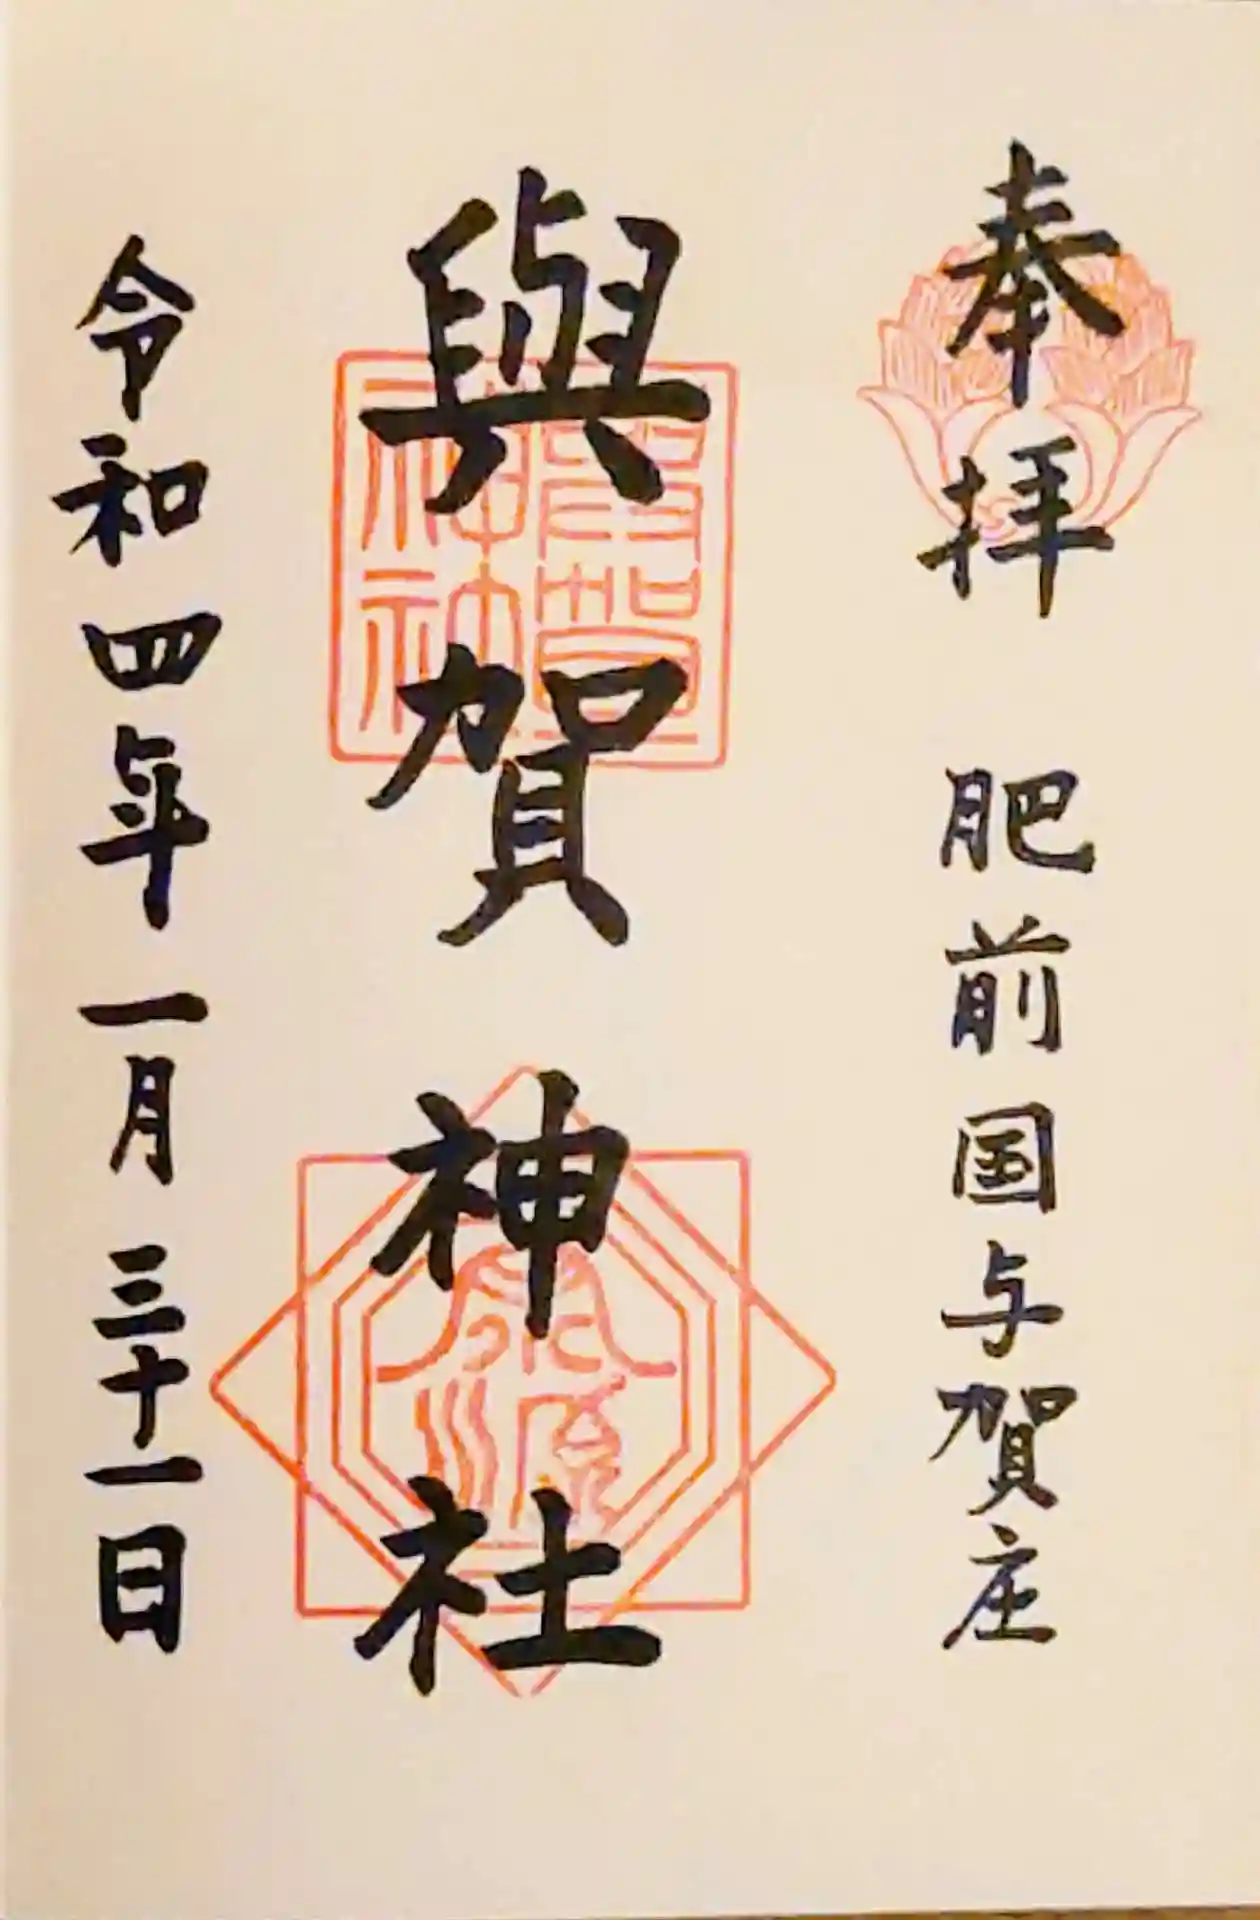 奉拝　肥前国与賀庄
與賀神社
令和四年一月三十一日